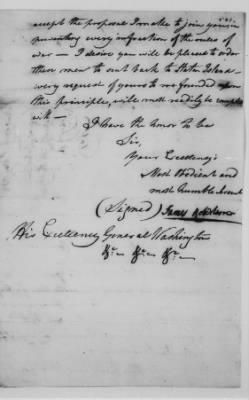 accept the proposal I make to join you in
preventing every infraction of the rules of
war — I desire you will be pleased to order
these men to out back to Staten Island
every request of yours to me founded upon
this principle, will most readily be complied
with —
I have the honor to be
Sir,
Your Excellency's
Most Obedient and
most humble Servt
(Signed)
His Excellency General Washington
&c &c &c